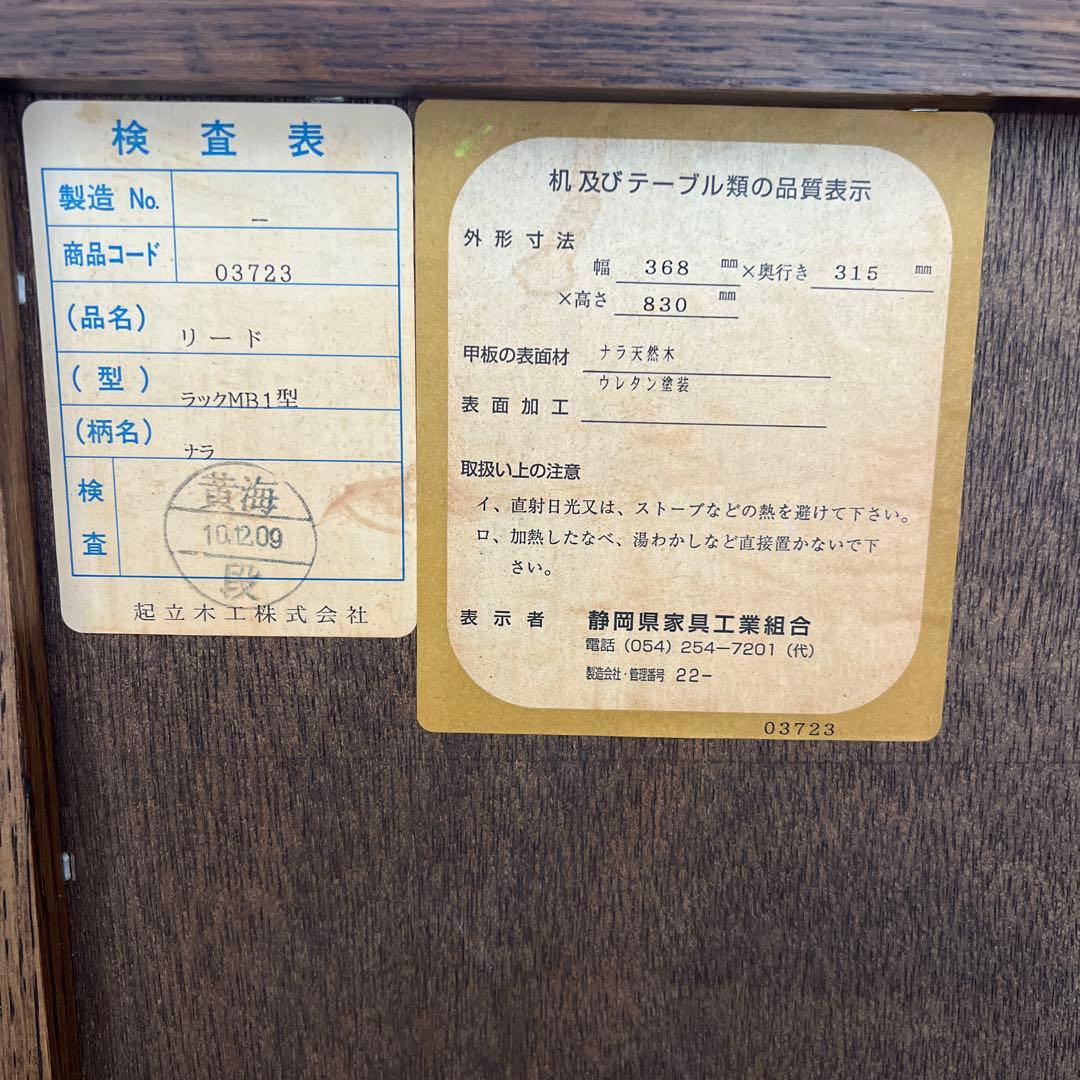 検査表
製造 No. ―
商品コード 03723
(品名) リード
(型) ラックMB1型
(柄名) ナラ
検査
黄海
10.12.09
段
起立木工株式会社
机及びテーブル類の品質表示
外形寸法
幅 368 mm×奥行き 315 mm
×高さ 830 mm
甲板の表面材 ナラ天然木
ウレタン塗装
表面加工
取扱い上の注意
イ、直射日光又は、ストーブなどの熱を避けて下さい。
ロ、加熱したなべ、湯わかしなど直接置かないで下
さい。
表示者 静岡県家具工業組合
電話 (054) 254-7201 (代)
製造会社・管理番号 22-
03723